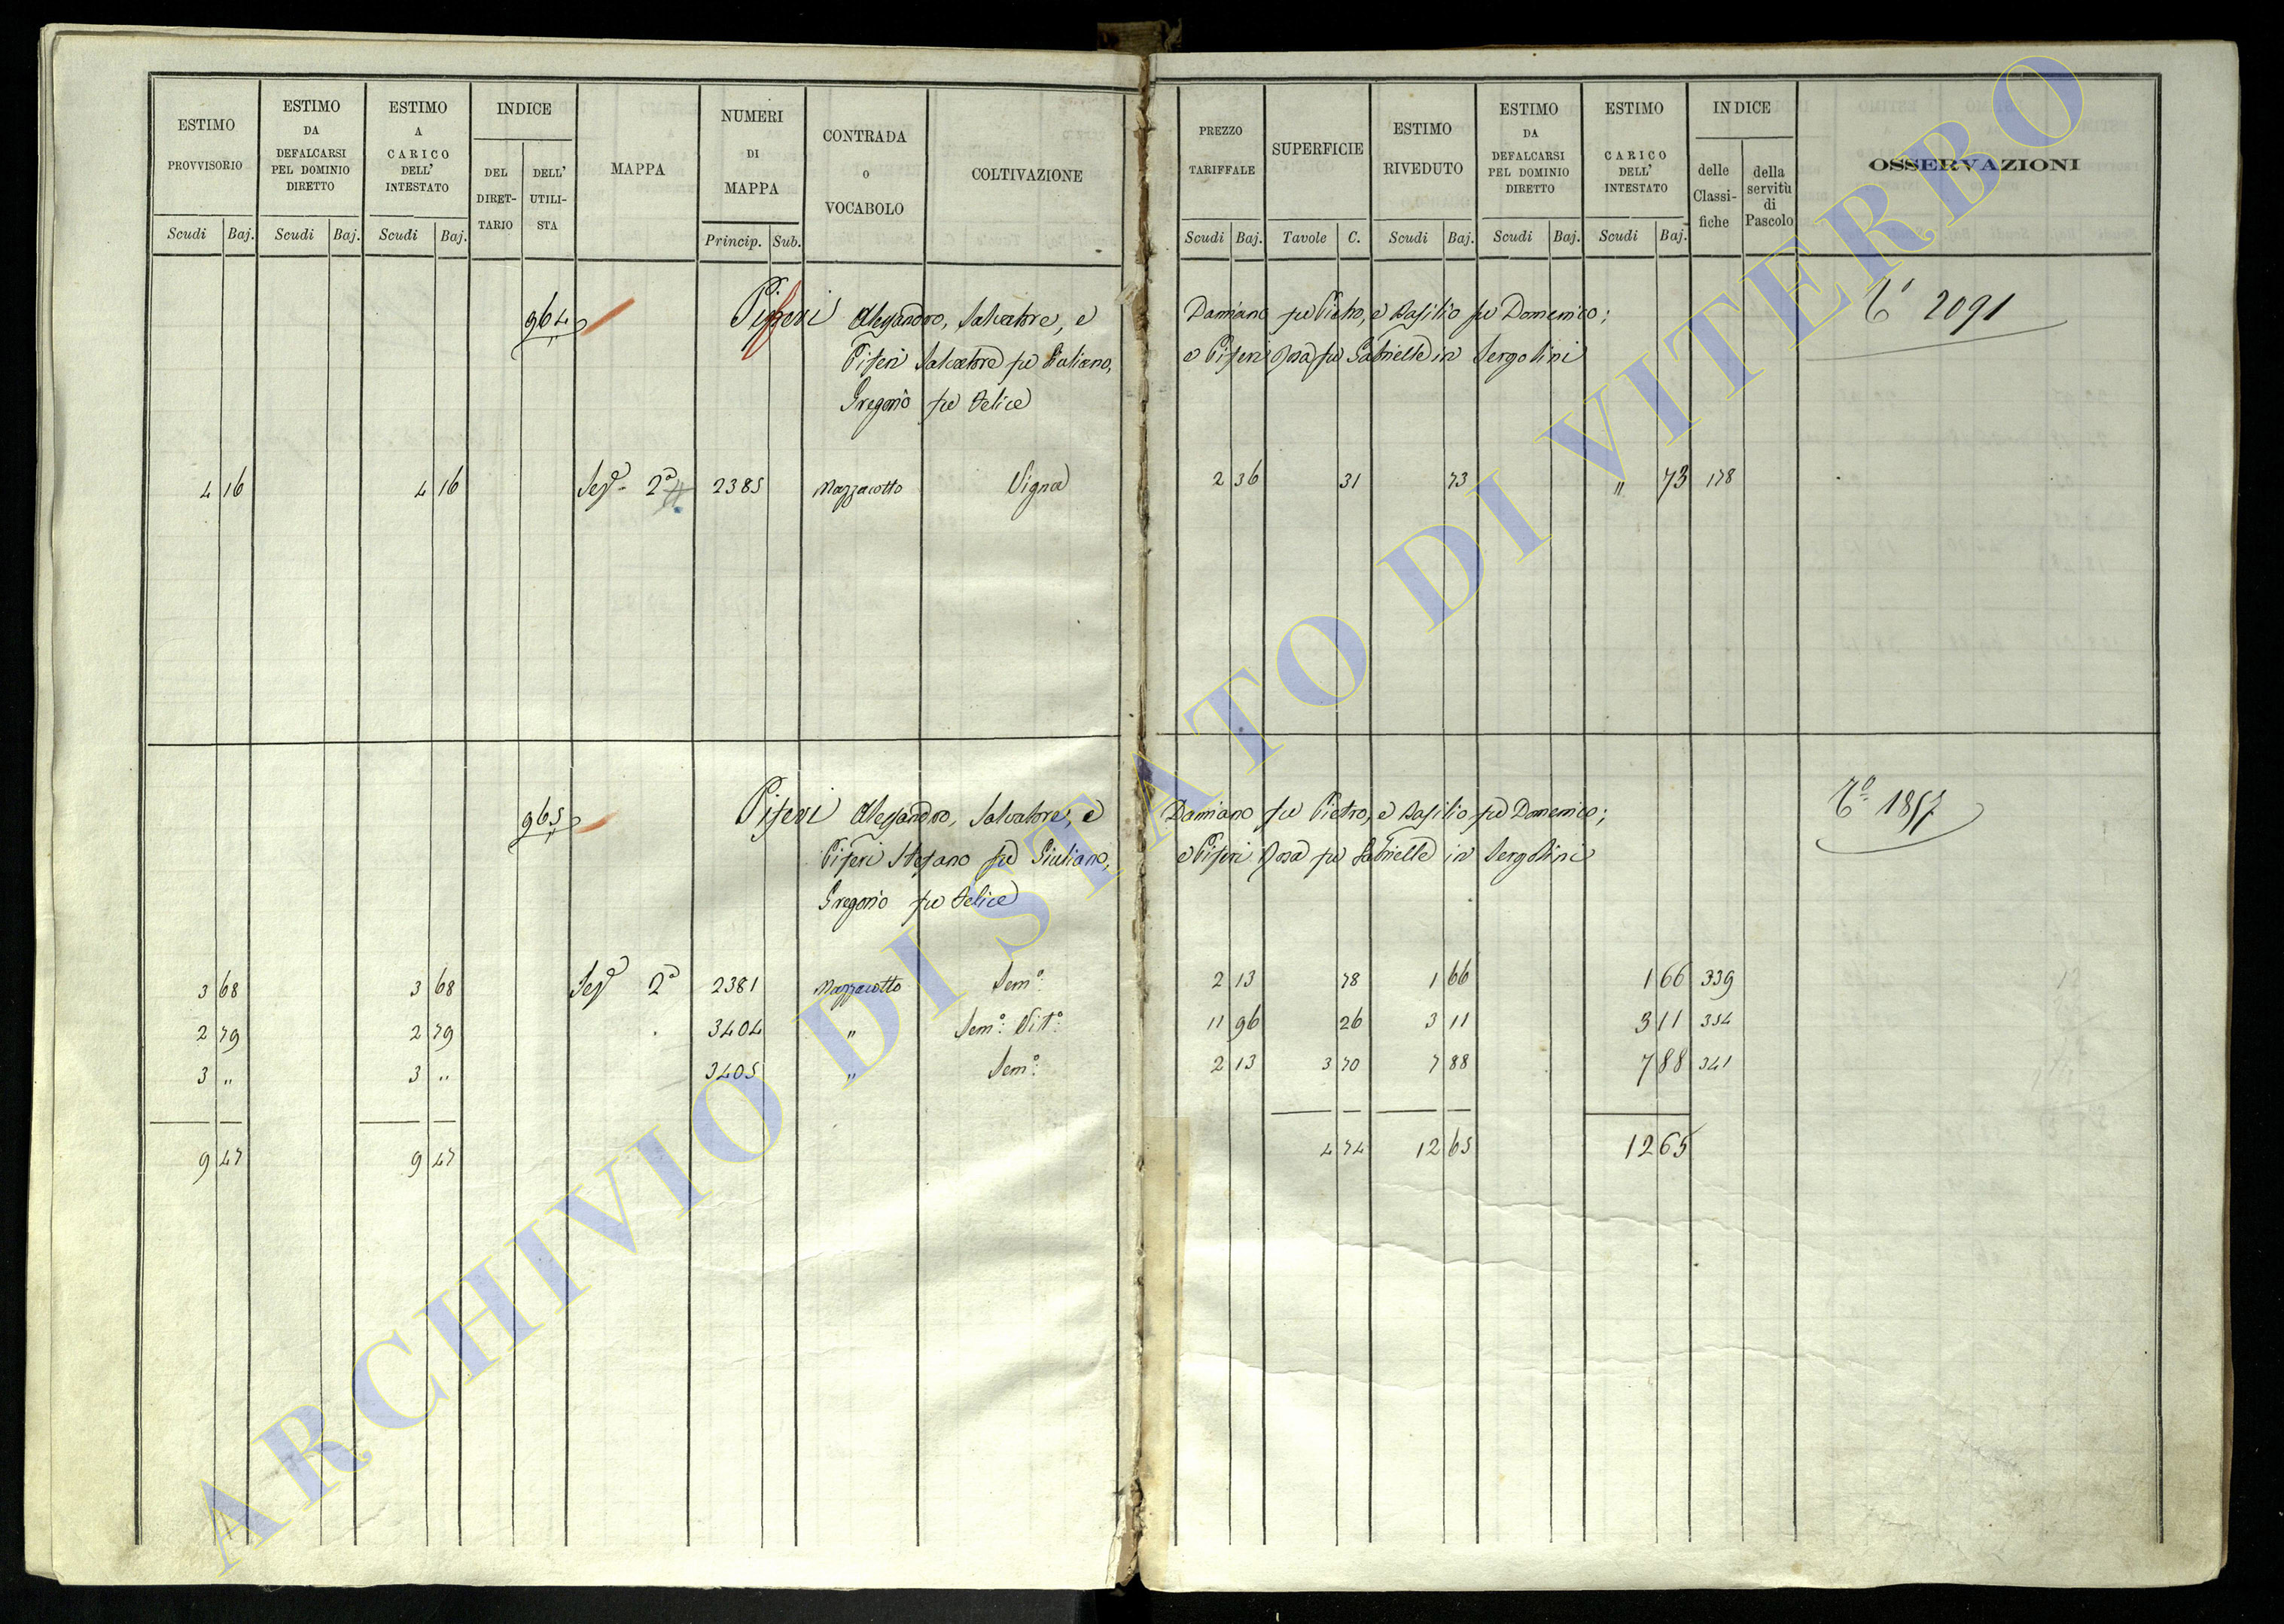 ESTIMO PROVVISORIO Scudi Baj.
ESTIMO DA DEFALCARSI PEL DOMINIO DIRETTO Scudi Baj.
ESTIMO A CARICO DELL' INTESTATO Scudi Baj.
INDICE DEL DIRET-TARIO DELL' UTILI-STA
MAPPA
NUMERI DI MAPPA Princip. Sub.
CONTRADA o VOCABOLO
COLTIVAZIONE
PREZZO TARIFFALE Scudi Baj.
SUPERFICIE Tavole C.
ESTIMO RIVEDUTO Scudi Baj.
ESTIMO DA DEFALCARSI PEL DOMINIO DIRETTO Scudi Baj.
ESTIMO CARICO DELL' INTESTATO Scudi Baj.
INDICE delle Classi-fiche della servitù di Pascolo
OSSERVAZIONI
964 Piferi Alessandro, Salvatore, e Damiano fu Pietro, e Basilio fu Domenico; 2091
Piferi Salvatore fu Giuliano, e Piferi Rosa fu Gabrielle in Sergolini
Gregorio fu Felice
4 16 4 16 Sez. 2ª 2385 Mazzacotto Vigna 2 36 31 73 " 73 178
965 Piferi Alessandro, Salvatore, e Damiano fu Pietro, e Basilio fu Domenico; 1857
Piferi Stefano fu Giuliano, e Piferi Rosa fu Gabrielle in Sergolini
Gregorio fu Felice
3 68 3 68 Sez. 2ª 2381 Mazzacotto Semº: 2 13 78 1 66 1 66 339
2 79 2 79 3404 " Semº: Vitº: 11 96 26 3 11 3 11 354
3 " 3 " 3405 " Semº: 2 13 3 70 7 88 7 88 341
9 47 9 47 4 74 12 65 12 65
ARCHIVIO DI STATO DI VITERBO